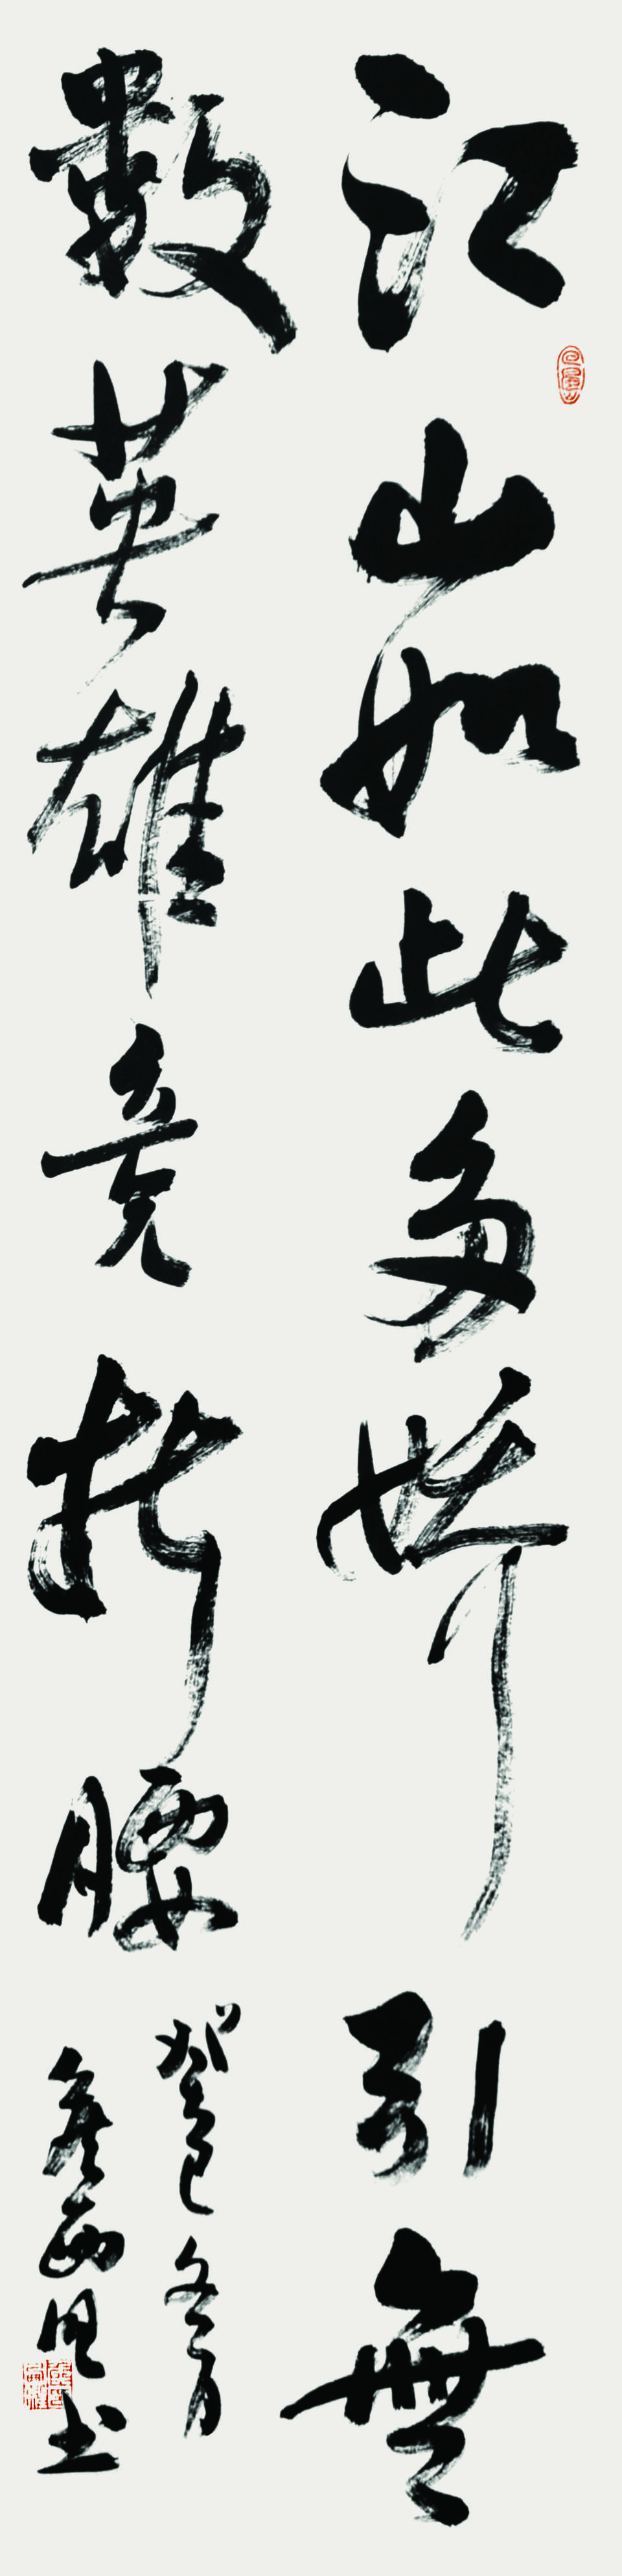 江山如此多娇引無
數英雄竞折腰
癸巳冬月
西 书